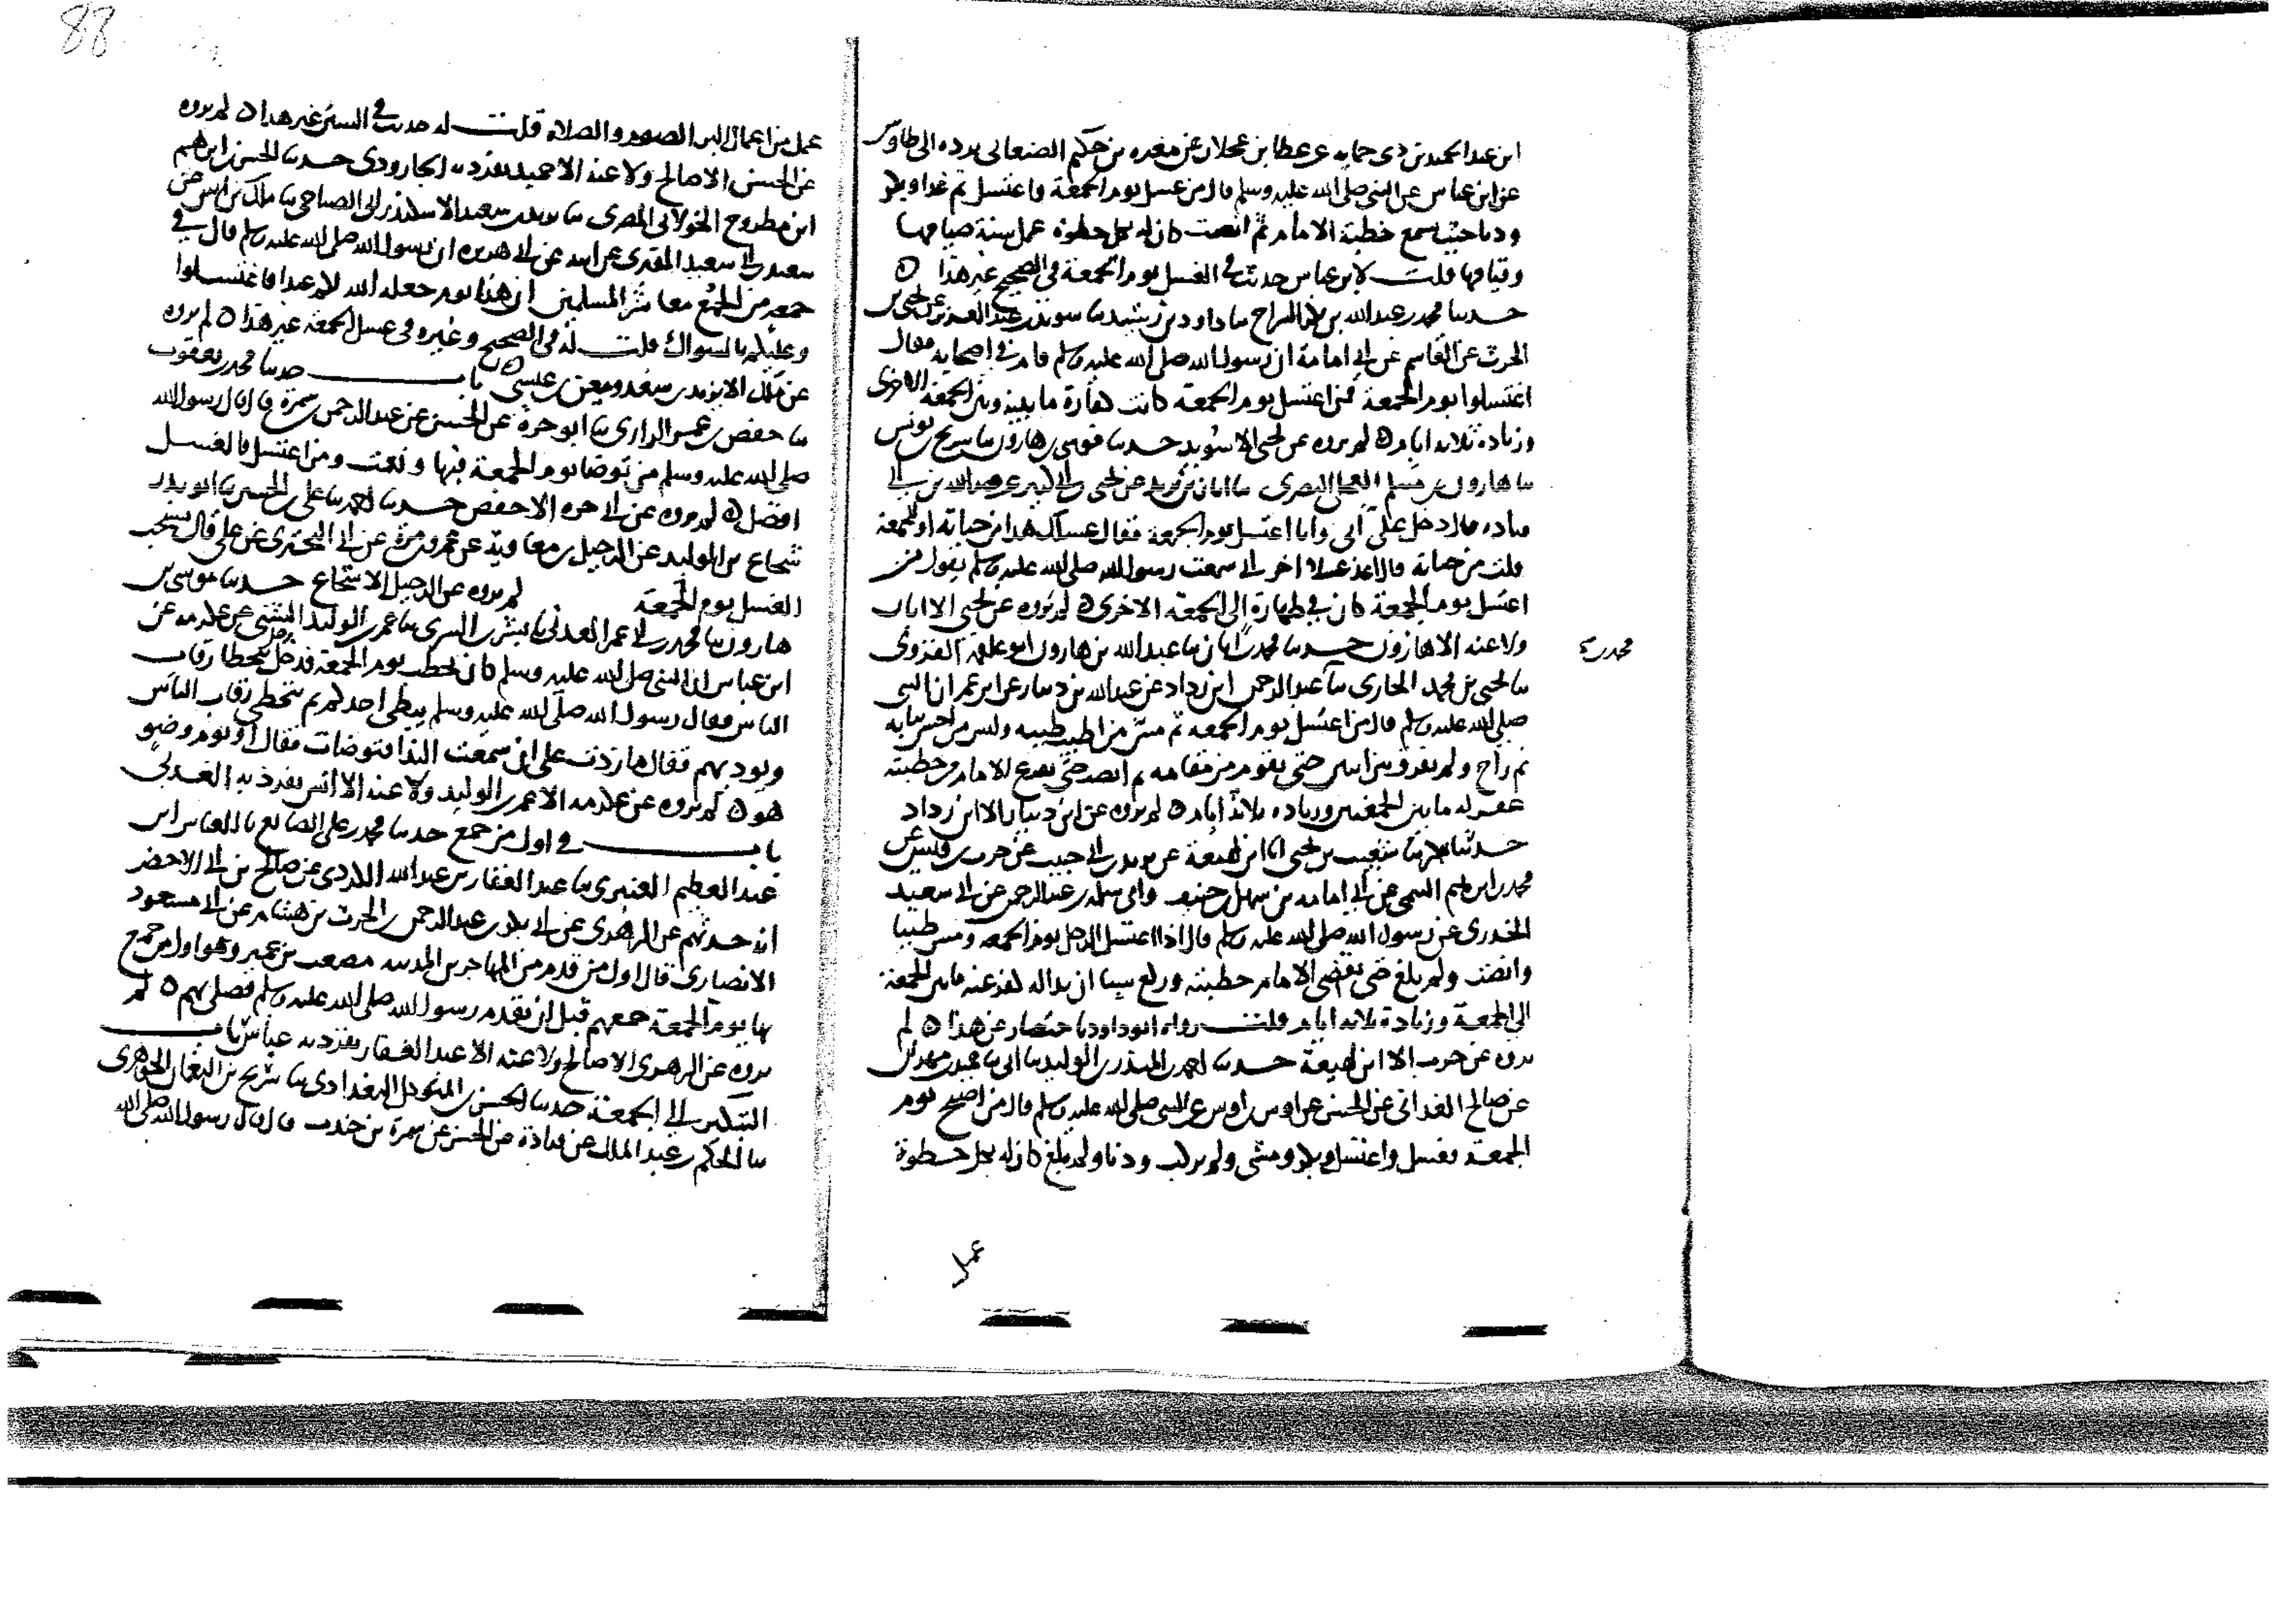 88
ابن عبد الحميد بن ذي حمايه عن عطا بن عجلان عن مغيره بن حكيم الصنعاني يرده الى طاوس
عن ابن عباس عن النبي صلى الله عليه وسلم قال من غسل يوم الجمعة واغتسل ثم غدا وبكر
ودنا حيث يسمع خطبة الامام ثم انصت كان له بكل خطوة عمل سنة صيامها
وقيامها قلت لابن عباس حديث في الغسل يوم الجمعة في الصحيح غير هذا ٥
حدثنا محمد بن عبد الله بن بكر السراج نا داود بن رشيد نا سويد بن عبد العزيز عن يحيى بن
الحرث عن القاسم عن ابي امامة ان رسول الله صلى الله عليه وسلم قام في اصحابه فقال
اغتسلوا يوم الجمعة فمن اغتسل يوم الجمعة كانت كفارة ما بينه وبين الجمعة الاخرى
وزيادة ثلاثه ايام ٥ لم يروه عن يحيى الا سويد حدثنا موسى بن هارون نا سريج بن يونس
نا هارون بن مسلم العجلي البصري نا ابان بن يزيد عن يحيى بن ابي كثير عن عبد الله بن ابي
قتاده قال دخل علي ابي وانا اغتسل يوم الجمعة فقال غسلك هذا من جنابة او للجمعة
قلت من جنابة قال اعد غسلا اخر اني سمعت رسول الله صلى الله عليه وسلم يقول من
اغتسل يوم الجمعة كان في طهارة الى الجمعة الاخرى ٥ لم يروه عن يحيى الا ابان
ولا عنه الا هارون حدثنا محمد بن ابان نا عبد الله بن هارون ابو علقمة الفروي
نا يحيى بن محمد الجاري نا عبد الرحمن ابن زداد عن عبد الله بن دينار عن ابن عمر ان النبي
صلى الله عليه وسلم قال من اغتسل يوم الجمعه ثم مس من اطيب طيبه ولبس من احسن ثيابه
ثم راح ولم يفرق بين اثنين حتى يقوم من مقامه ثم انصت حتى يفرغ الامام من خطبته
غفر له ما بين الجمعتين وزياده ثلاثة ايام ٥ لم يروه عن ابن دينار الا ابن زداد
حدثنا بكر نا شعيب بن يحيى انا ابن لهيعة عن يزيد بن ابي حبيب عن حرب بن قيس عن
محمد بن ابراهيم التيمي عن ابي امامه بن سهل بن حنيف وابي سلمه بن عبد الرحمن عن ابي سعيد
الخدري عن رسول الله صلى الله عليه وسلم قال اذا اغتسل الرجل يوم الجمعه ومس طيبا
وانصت ولم يلغ حتى يقضي الامام خطبته وركع شيئا ان بدا له كفر عنه ما بين الجمعة
الى الجمعة وزيادة ثلاثه ايام قلت رواه ابو داود باختصار عن هذا ٥ لم
يروه عن حرب الا ابن لهيعة حدثنا احمد بن المنذر بن الوليد نا ابي نا حميد بن مهران
عن صالح الغداني عن الحسن عن اوس بن اوس عن النبي صلى الله عليه وسلم قال من اصبح يوم
الجمعة فغسل واغتسل وبكر ومشى ولم يركب ودنا ولم يلغ كان له بكل خطوة
عمل
عمل من اعمال البر الصوم والصلاة قلت له حديث في السنن غير هذا ٥ لم يروه
عن الحسن الا صالح ولا عنه الا حميد تفرد به الجارودي حدثنا الحسن بن ابراهيم
ابن مطروح الخولاني المصري نا يزيد بن سعيد الاسكندراني الصباحي نا مالك بن انس عن
سعيد بن ابي سعيد المقبري عن ابيه عن ابي هريره ان رسول الله صلى الله عليه وسلم قال في
جمعه من الجمع معاشر المسلمين ان هذا يوم جعله الله لكم عيدا فاغتسلوا
وعليكم بالسواك قلت له في الصحيح وغيره في غسل الجمعة غير هذا ٥ لم يروه
عن مالك الا يزيد بن سعيد ومعن بن عيسى ٥ باب حدثنا محمد بن يعقوب
نا حفص بن عمر الرازي نا ابو حرة عن الحسن عن عبد الرحمن بن سمرة قال قال رسول الله
صلى الله عليه وسلم من توضا يوم الجمعة فبها ونعمت ومن اغتسل فالغسل
افضل ٥ لم يروه عن ابي حره الا حفص حدثنا احمد نا علي بن الحسين نا ابو بدر
شجاع بن الوليد عن الرحيل بن معاوية عن عمرو بن مرة عن ابي البختري عن علي قال يستحب
الغسل يوم الجمعة لم يروه عن الرحيل الا شجاع حدثنا موسى بن
هارون نا محمد بن ابي عمر العدني نا بشر بن السري نا عمر بن الوليد الشني عن عكرمه عن
ابن عباس ان النبي صلى الله عليه وسلم كان يخطب يوم الجمعة فدخل رجل يتخطا رقاب
الناس فقال رسول الله صلى الله عليه وسلم يبطي احدكم ثم يتخطى رقاب الناس
ويوديهم فقال ما زدت على ان سمعت الندا فتوضات فقال او يوم وضو
هو ٥ لم يروه عن عكرمه الا عمر بن الوليد ولا عنه الا بشر تفرد به العدني
باب في اول من جمع حدثنا محمد بن علي الصايغ نا العباس ابن
عبد العظيم العنبري نا عبد الغفار بن عبد الله الكردي عن صالح بن ابي الاخضر
انه حدثهم عن الزهري عن ابي بكر بن عبد الرحمن بن الحرث بن هشام عن ابي مسعود
الانصاري قال اول من قدم من المهاجرين المدينه مصعب بن عمير وهو اول من جمع
بها يوم الجمعة جمعهم قبل ان يقدم رسول الله صلى الله عليه وسلم فصلى بهم ٥ لم
يروه عن الزهري الا صالح ولا عنه الا عبد الغفار تفرد به عباس باب
التبكير الى الجمعة حدثنا الحسن بن المتوكل البغدادي نا سريج بن النعمان الجوهري
نا الحكم بن عبد الملك عن قتادة عن الحسن عن سمرة بن جندب قال قال رسول الله صلى الله